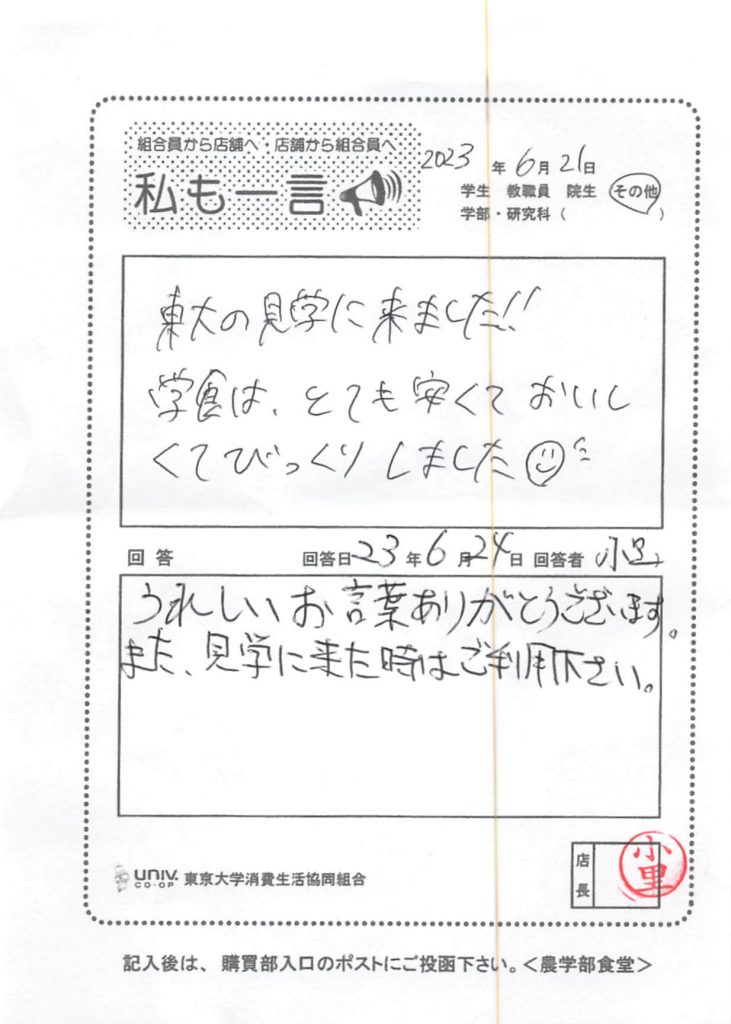 組合員から店舗へ・店舗から組合員へ
私も一言
2023年6月21日
学生 教職員 院生 その他
学部・研究科（ ）
東大の見学に来ました!!
学食は、とても安くておいし
くてびっくりしました
回答 回答日23年6月24日 回答者 小里
うれしいお言葉ありがとうございます。
また、見学に来た時はご利用下さい。
店長 小里
UNIV. CO-OP 東京大学消費生活協同組合
記入後は、購買部入口のポストにご投函下さい。＜農学部食堂＞